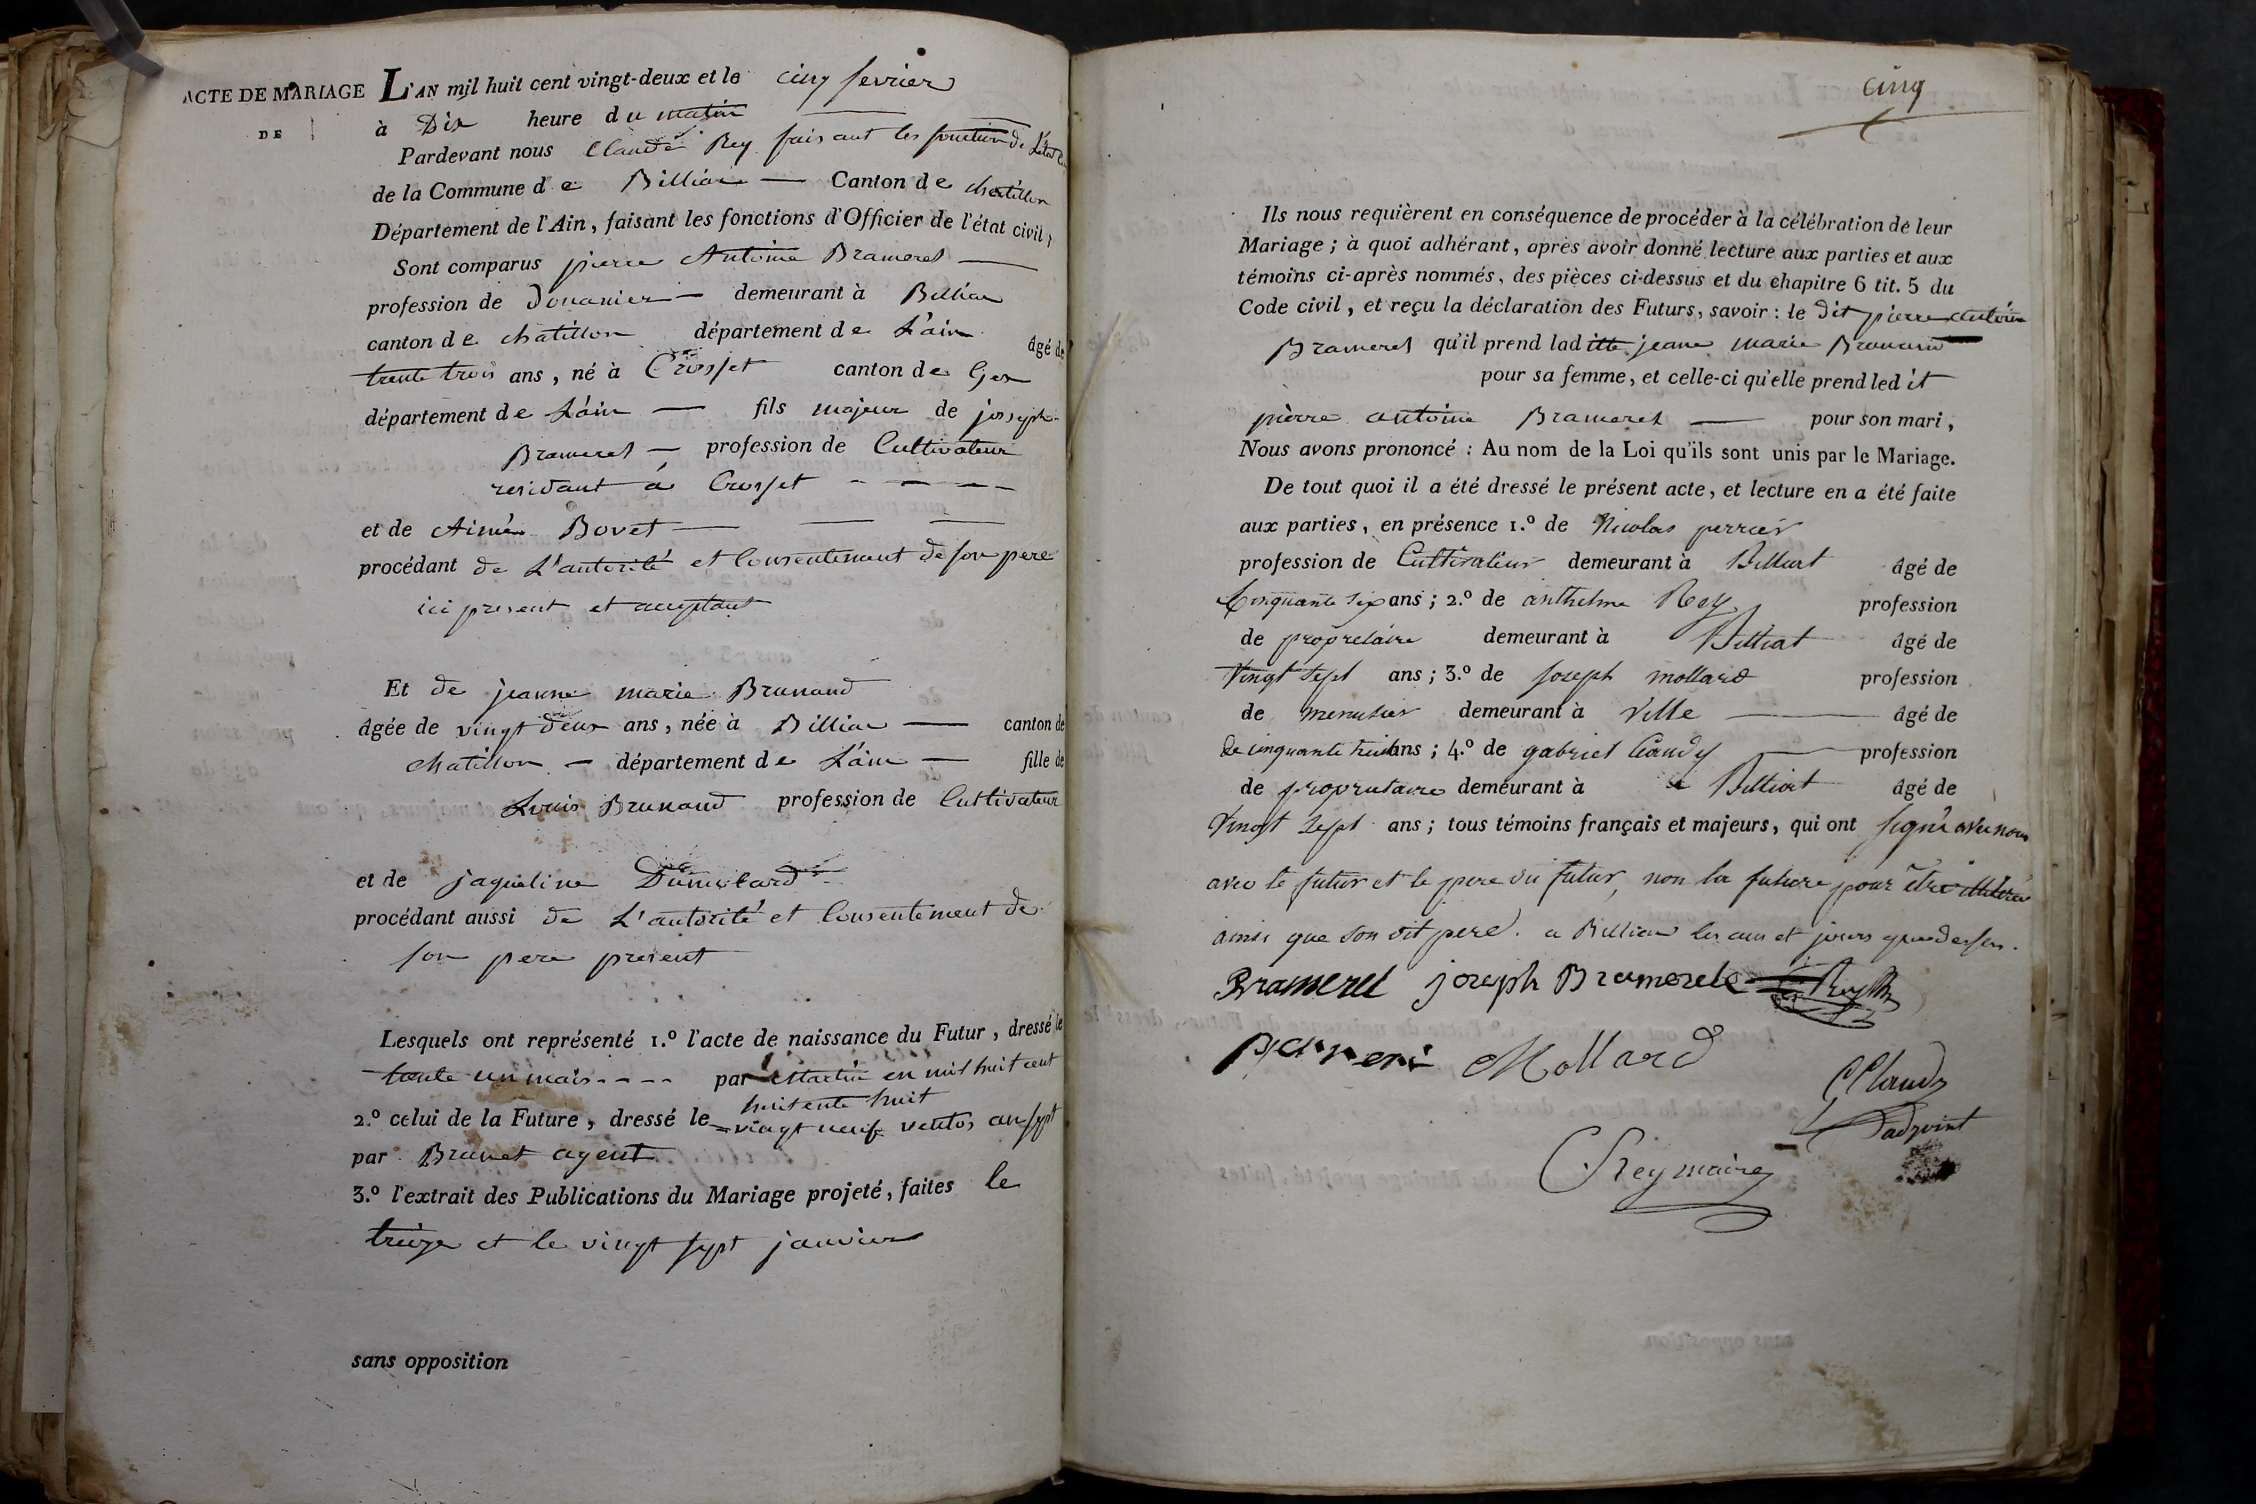 ACTE DE MARIAGE
DE
L'AN mil huit cent vingt-deux et le cinq fevrier
à Dix heure du matin
Pardevant nous Claude Rey faisant les fonction de L'etat
de la Commune de Billiat Canton de chatillon
Département de l'Ain, faisant les fonctions d'Officier de l'état civil,
Sont comparus pierre Antoine Brameret
profession de Douanier demeurant à Billiat
canton de chatillon département de L'ain âgé de
trente trois ans, né à Crosjet canton de Gex
département de L'ain fils majeur de joseph
Brameret profession de Cultivateur
residant a Crosjet
et de Aimée Bovet
procédant de L'autorité et Consentement de son pere
ici present et acceptant
Et de jeanne marie Brunand
âgée de vingt deux ans, née à Billiat canton de
chatillon département de L'ain fille de
Louis Brunand profession de Cultivateur
et de jaqueline
procédant aussi de L'autorité et Consentement de
son pere present
Lesquels ont représenté 1.º l'acte de naissance du Futur, dressé le
trente un mais par Martin en mil huit cent
huitente huit
2.º celui de la Future, dressé le vingt neuf ventos an sept
par Brunet agent
3.º l'extrait des Publications du Mariage projeté, faites le
treize et le vingt sept janvier
sans opposition
cinq
Ils nous requièrent en conséquence de procéder à la célébration de leur
Mariage; à quoi adhérant, après avoir donné lecture aux parties et aux
témoins ci-après nommés, des pièces ci-dessus et du chapitre 6 tit. 5 du
Code civil, et reçu la déclaration des Futurs, savoir: le dit pierre antoine
Brameret qu'il prend laditte jeane marie Brunand
pour sa femme, et celle-ci qu'elle prend ledit
pierre antoine Brameret pour son mari,
Nous avons prononcé: Au nom de la Loi qu'ils sont unis par le Mariage.
De tout quoi il a été dressé le présent acte, et lecture en a été faite
aux parties, en présence 1.º de Nicolas perrier
profession de Cultivateur demeurant à Billiat âgé de
Cinquante six ans; 2.º de anthelme Rey profession
de propretaire demeurant à Billiat âgé de
Vingt sept ans; 3.º de joseph mollard profession
de menusier demeurant à Ville âgé de
de cinquante huit ans; 4.º de gabriel Claudy profession
de propriutaire demeurant à a Billiat âgé de
Vingt sept ans; tous témoins français et majeurs, qui ont signé avec nous
avec le futur et le pere du futur, non la future pour être illiterée
ainsi que son dit pere. a Billiat les an et jours que dessus.
Brameret joseph Brameret Rey
Mollard
Claudy
adjoint
C Rey maire